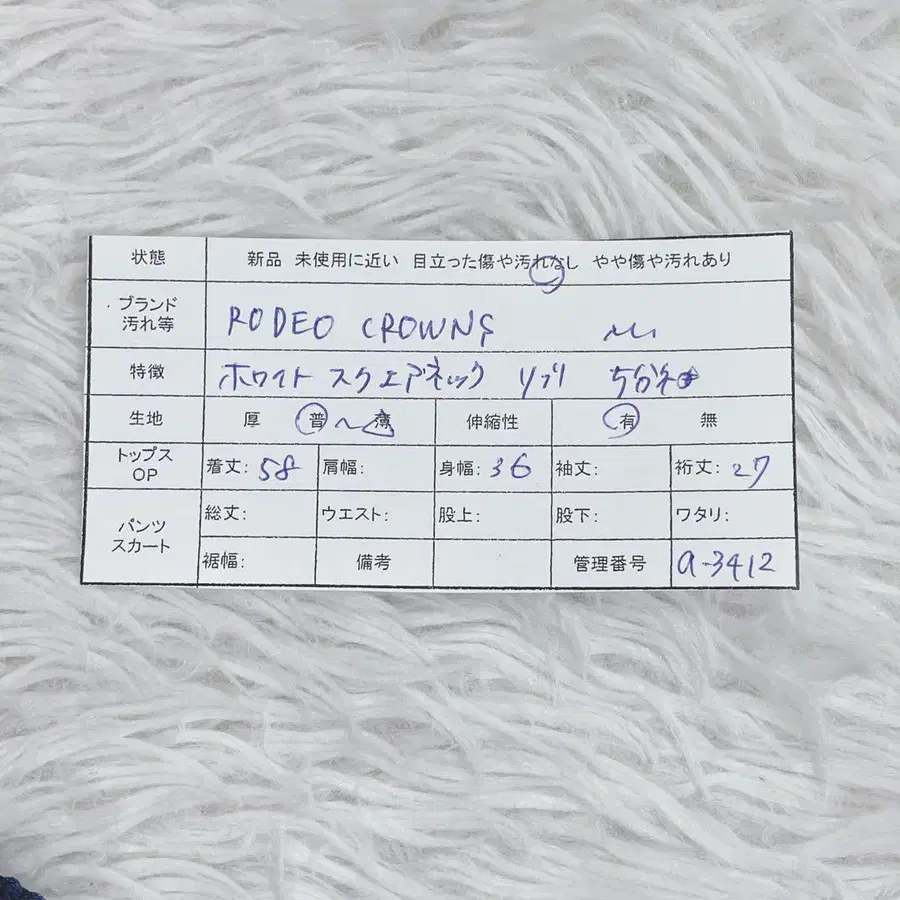 状態 新品 未使用に近い 目立った傷や汚れなし やや傷や汚れあり
・ブランド
汚れ等
RODEO CROWNS
特徴 ホワイト スクエアネック リブ 5分袖
生地 厚 普 〜 薄 伸縮性 有 無
トップス
OP
着丈: 58 肩幅: 身幅: 36 袖丈: 裄丈: 27
パンツ
スカート
総丈: ウエスト: 股上: 股下: ワタリ:
裾幅: 備考 管理番号 a-3412